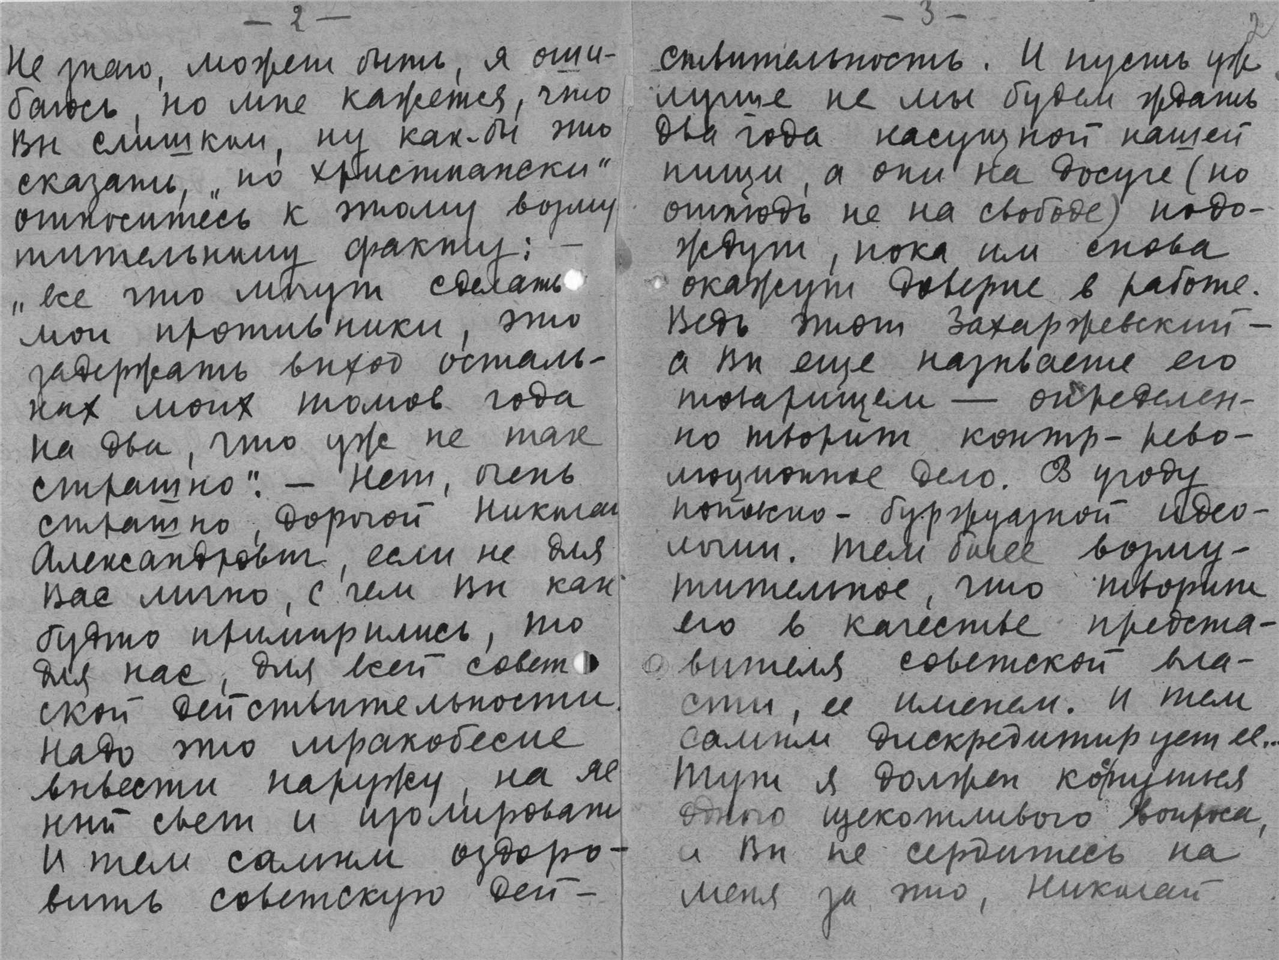 — 2 —
Не знаю, может быть, я оши-
баюсь, но мне кажется, что
Вы слишком, ну как-бы это
сказать, „по христиански"
относитесь к этому возму
тительному факту: —
„все что могут сделать
мои противники, это
задержать выход осталь-
ных моих томов года
на два, что уж не так
страшно". — Нет, очень
страшно, дорогой Николай
Александрович, если не для
Вас лично, с чем Вы как
будто примирились, то
для нас, для всей совет
ской действительности.
Надо это мракобесие
вывести наружу, на яс
ный свет и изолировать
И тем самым оздоро-
вить советскую дей-
— 3 —
2
ствительность. И пусть уж
лучше не мы будем ждать
два года насущной нашей
пищи, а они на досуге (но
отнюдь не на свободе) подо-
ждут, пока им снова
окажут доверие в работе.
Ведь этот Захаржевский —
а Вы еще называете его
товарищем — определен-
но творит контр-рево-
люционное дело. В угоду
поповско-буржуазной идео-
логии. Тем более возму-
тительное, что творит
его в качестве предста-
вителя советской вла-
сти, ее именем. И тем
самым дискредитирует ее...
Тут я должен коснуться
одного щекотливого вопроса,
и Вы не сердитесь на
меня за это, Николай